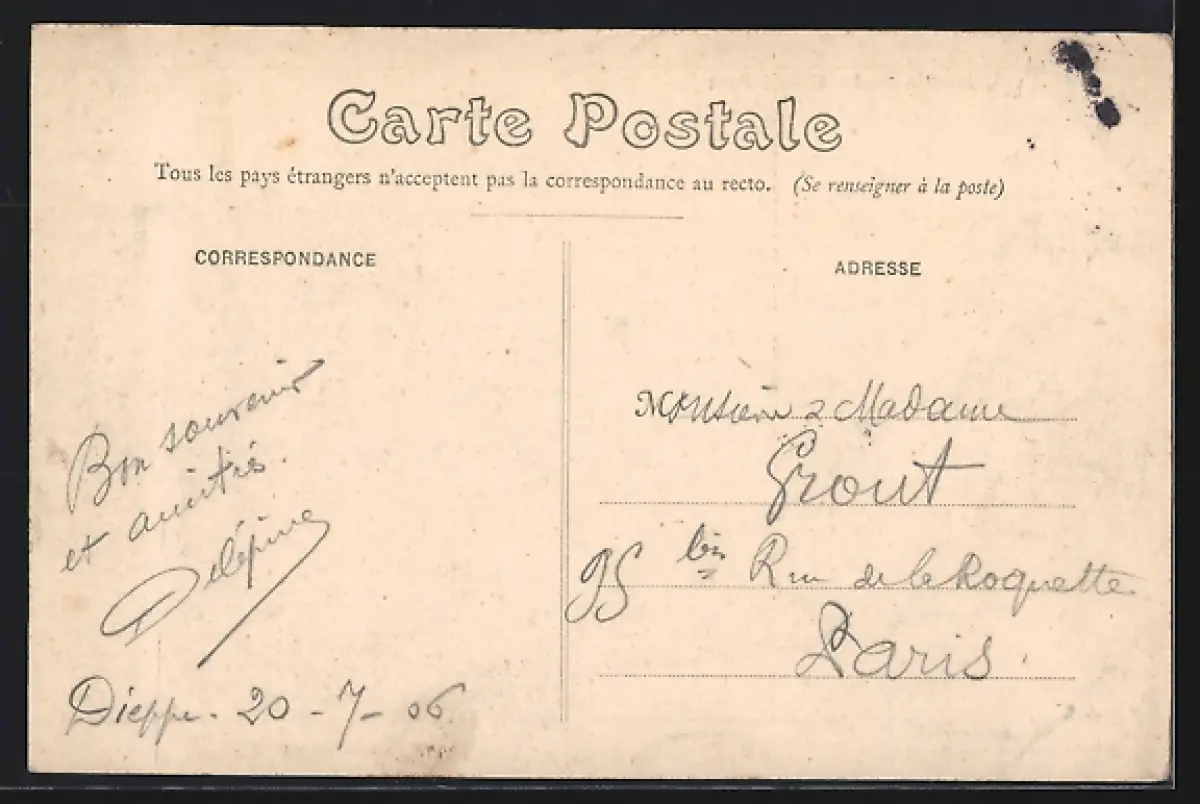 Carte Postale
Tous les pays étrangers n'acceptent pas la correspondance au recto. (Se renseigner à la poste)
CORRESPONDANCE
Bon souvenir
et amitiés.
Delépine
Dieppe - 20 - 7 - 06
ADRESSE
Monsieur & Madame
Grout
95 bis Rue de la Roquette
Paris.